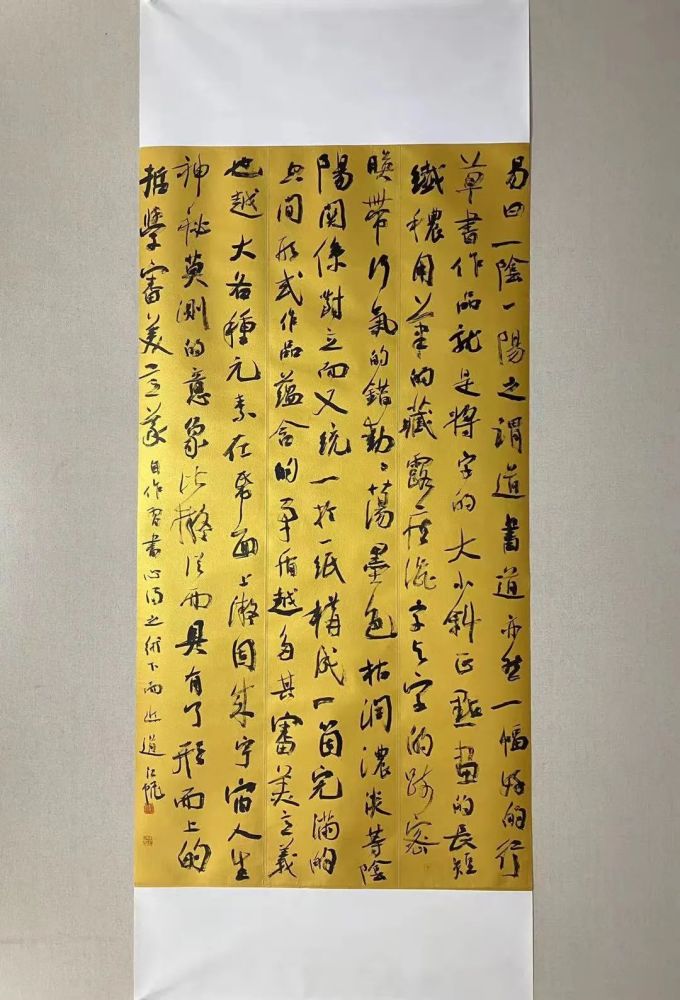 易曰一陰一陽之謂道書道亦然一幅好的行
草書作品就是將字的大小斜正點畫的長短
纖穠用筆的藏露疾澀字与字的疏密
映帶行氣的錯動跌蕩墨色枯潤濃淡等陰
陽関係對立而又統一於一紙構成一箇完滿的
空间形式作品蘊含的矛盾越多其審美意義
也越大各種元素在希面上凝固成宇宙人生
神秘莫測的意象 從而具有了形而上的
哲學審美意義 自作習書心得之 下而近道 江